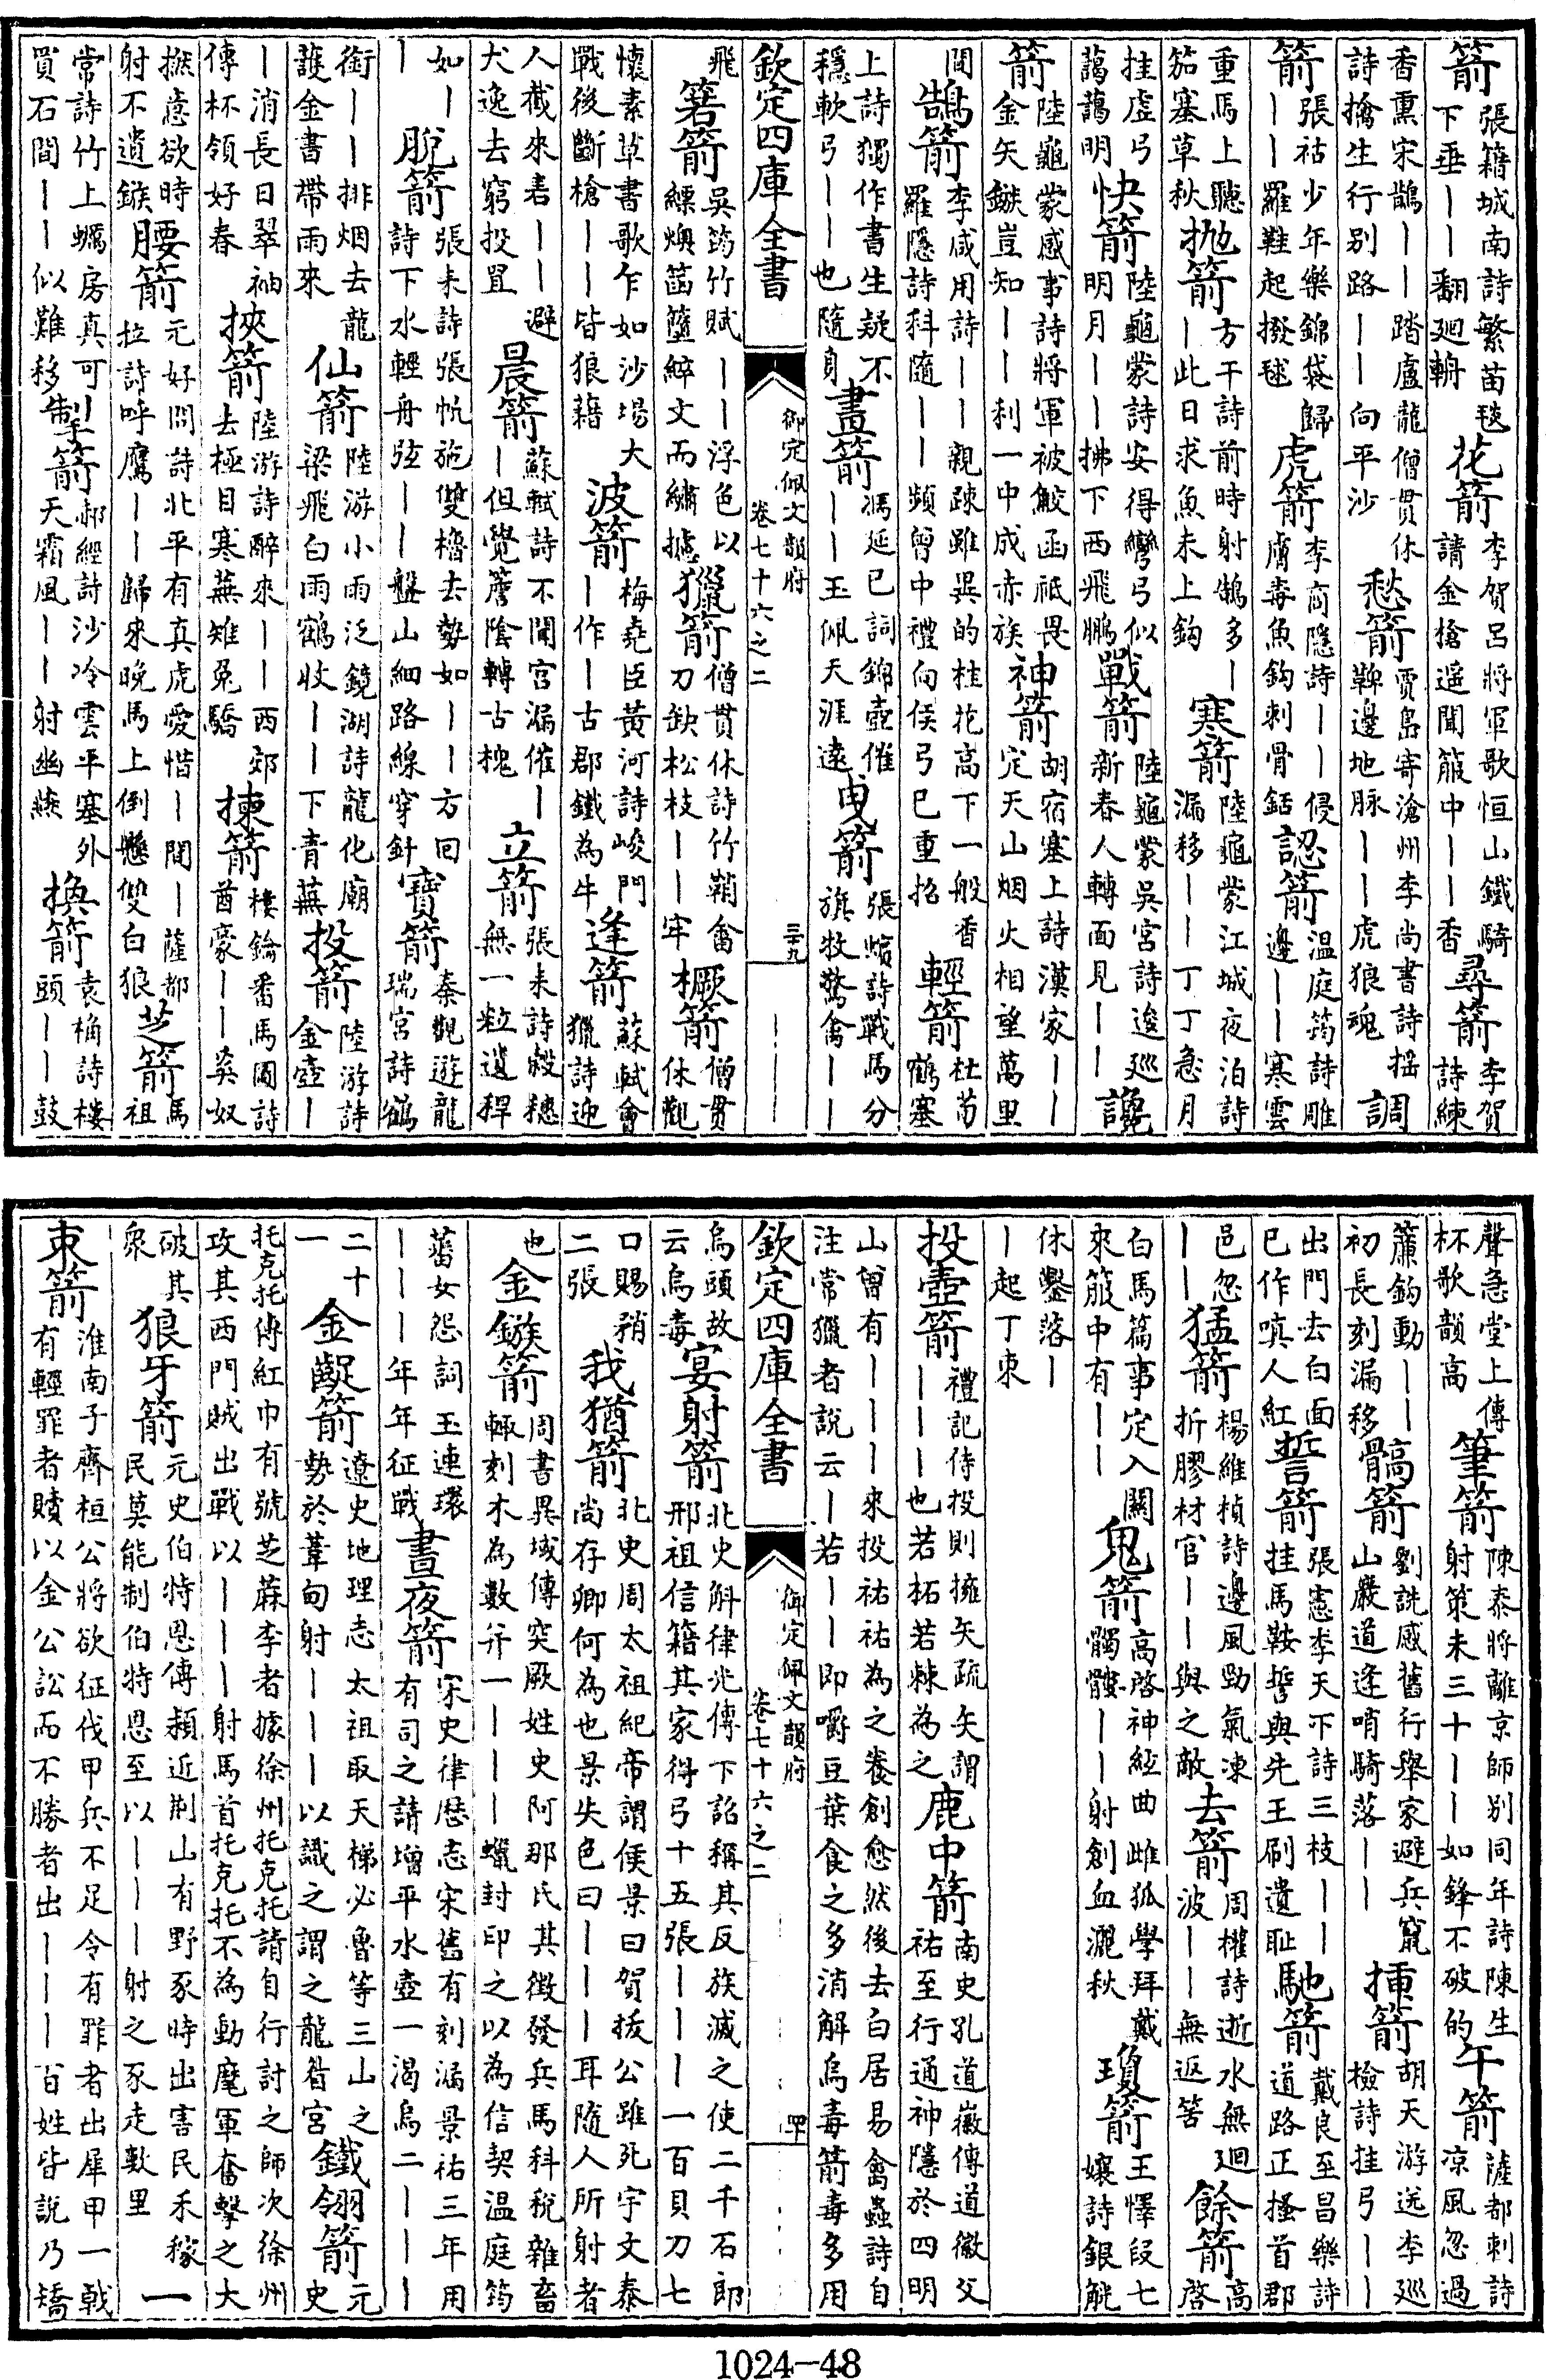 箭 張籍城南詩繁苗毯下垂｜｜翻迴輈 花箭 李賀呂將軍歌恒山鐵騎請金槍遥聞箙中｜｜香 尋箭 李賀詩練
香熏宋鵲｜｜踏盧龍僧貫休詩擒生行别路｜｜向平沙 愁箭 賈島寄滄州李尚書詩揺鞞邊地脉｜｜虎狼魂 調
箭 張祜少年樂錦袋歸｜｜羅鞋起撥毬 虎箭 李商隱詩｜｜侵膚毒魚鈎刺骨銛 認箭 温庭筠詩雕邊｜｜寒雲
重馬上聽笳塞草秋 抛箭 方干詩前時射鵠多｜｜此日求魚未上鈎 寒箭 陸龜蒙江城夜泊詩漏移｜｜丁丁急月
挂虚弓藹藹明 快箭 陸龜蒙詩安得彎弓似明月｜｜拂下西飛鵬 戰箭 陸龜蒙吳宫詩逡巡新春人轉面見｜｜ 讒
箭 陸龜蒙感事詩將軍被鮫函祗畏金矢鏃豈知｜｜利一中成赤族 神箭 胡宿塞上詩漢家｜｜定天山烟火相望萬里
間 鵠箭 李咸用詩｜｜親疎雖異的桂花高下一般香羅隱詩科隨｜｜頻曾中禮向侯弓已重招 輕箭 杜荀鶴塞
上詩獨作書生疑不穩軟弓｜｜也隨身 畫箭 馮延已詞錦壺催｜｜玉佩天涯遠 曳箭 張嬪詩戰馬分旗牧驚禽｜｜
欽定四庫全書 御定佩文韻府 卷七十六之二 三十九
飛 箬箭 吳筠竹賦｜｜浮色以縹燠菌簬綷文而繡攄 獵箭 僧貫休詩竹鞘畬刀缺松枝｜｜牢 橛箭 僧貫休觀
懷素草書歌乍如沙塲大戰後斷槍｜｜皆狼藉 波箭 梅堯臣黃河詩峻門｜作｜古郡鐵為牛 逢箭 蘇軾會獵詩迎
人截來砉｜｜避犬逸去窮投罝 晨箭 蘇軾詩不聞宫漏催｜｜但覺簷陰轉古槐 立箭 張耒詩殺穗無一粒遺稈
如｜｜ 脫箭 張耒詩張帆施雙櫓去勢如｜｜方回詩下水輕舟弦｜｜盤山細路線穿針 寶箭 秦觀遊龍瑞宫詩鶴
銜｜｜排烟去龍護金書帶雨來 仙箭 陸游小雨泛鏡湖詩龍化廟梁飛白雨鶴收｜｜下青蕪 投箭 陸游詩金壺｜
｜消長日翠袖傳杯領好春 挾箭 陸游詩醉來｜｜西郊去極目寒蕪雉兔驕 揀箭 樓鑰番馬圖詩酋豪｜｜奚奴
撚意欲時射不遺鏃 腰箭 元好問詩北平有真虎愛惜｜間｜薩都拉詩呼鷹｜｜歸來晚馬上倒懸雙白狼 芝箭 馬祖
常詩竹上蠣房真可買石間｜｜似難移 掣箭 郝經詩沙冷雲平塞外天霜風｜｜射幽燕 換箭 袁桷詩樓頭｜｜鼓
聲急堂上傳杯歌韻高 筆箭 陳泰將離京師别同年詩陳生射策未三十｜｜如鋒不破的 午箭 薩都剌詩凉風忽過
簾鈎動｜｜初長刻漏移 髇箭 劉詵感舊行舉家避兵竄山巖道逢哨騎落｜｜ 插箭 胡天游送李巡檢詩挂弓｜｜
出門去白面已作嗔人紅 誓箭 張憲李天下詩三枝｜｜挂馬鞍誓與先王刷遺耻 馳箭 戴良至昌樂詩道路正搔首郡
邑忽｜｜ 猛箭 楊維楨詩邊風勁氣凍折膠材官｜｜與之敵 去箭 周權詩逝水無廻波｜｜無返筈 餘箭 高啓
白馬篇事定入關來箙中有｜｜ 鬼箭 高啓神絃曲雌狐學拜戴髑髏｜｜射創血灑秋 瓊箭 王懌段七孃詩銀觥
休鑿落｜｜起丁東
投壺箭 禮記侍投則擁矢疏矢謂｜｜｜也若柘若棘為之 鹿中箭 南史孔道徽傳道徽父祐至行通神隱於四明
山曾有｜｜｜來投祐祐為之養創愈然後去白居易禽蟲詩自注常獵者說云｜若｜｜即嚼豆葉食之多消解烏毒箭毒多用
欽定四庫全書 御定佩文韻府 卷七十六之二 四十
烏頭故云烏毒 宴射箭 北史斛律光傳下詔稱其反族滅之使二千石郎邢祖信籍其家得弓十五張｜｜｜一百貝刀七
口賜矟二張 我猶箭 北史周太祖紀帝謂侯景曰賀拔公雖死宇文泰尚存卿何為也景失色曰｜｜｜耳隨人所射者
也 金鏃箭 周書異域傳突厥姓史阿那氏其徵發兵馬科稅雜畜輒刻木為數并一｜｜｜蠟封印之以為信契温庭筠
蕃女怨詞玉連環｜｜｜年年征戰 晝夜箭 宋史律厯志宋舊有刻漏景祐三年用有司之請增平水壺一渴烏二｜｜｜
二十一 金齪箭 遼史地理志太祖取天梯必魯等三山之勢於葦甸射｜｜｜以識之謂之龍眉宫 鐵翎箭 元史
托克托傳紅巾有號芝蔴李者據徐州托克托請自行討之師次徐州攻其西門賊出戰以｜｜｜射馬首托克托不為動麾軍奮擊之大
破其衆 狼牙箭 元史伯特恩傳頴近荆山有野豕時出害民禾稼民莫能制伯特恩至以｜｜｜射之豕走數里 一
束箭 淮南子齊桓公將欲征伐甲兵不足令有罪者出犀甲一戟有輕罪者贖以金公訟而不勝者出｜｜｜百姓皆說乃矯
1024-48